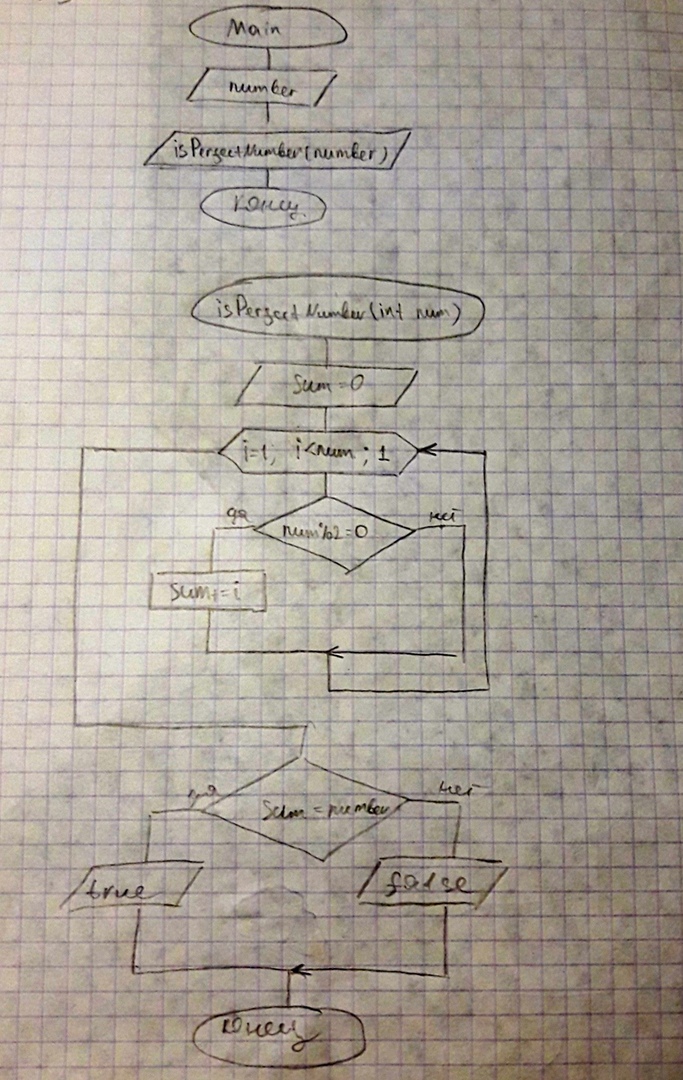 Main
number
isPerfectNumber(number)
Конец
isPerfectNumber(int num)
Sum=0
i=1; i<num; 1
да
нет
num%2=0
Sum+=i
да
нет
Sum=number
true
false
Конец